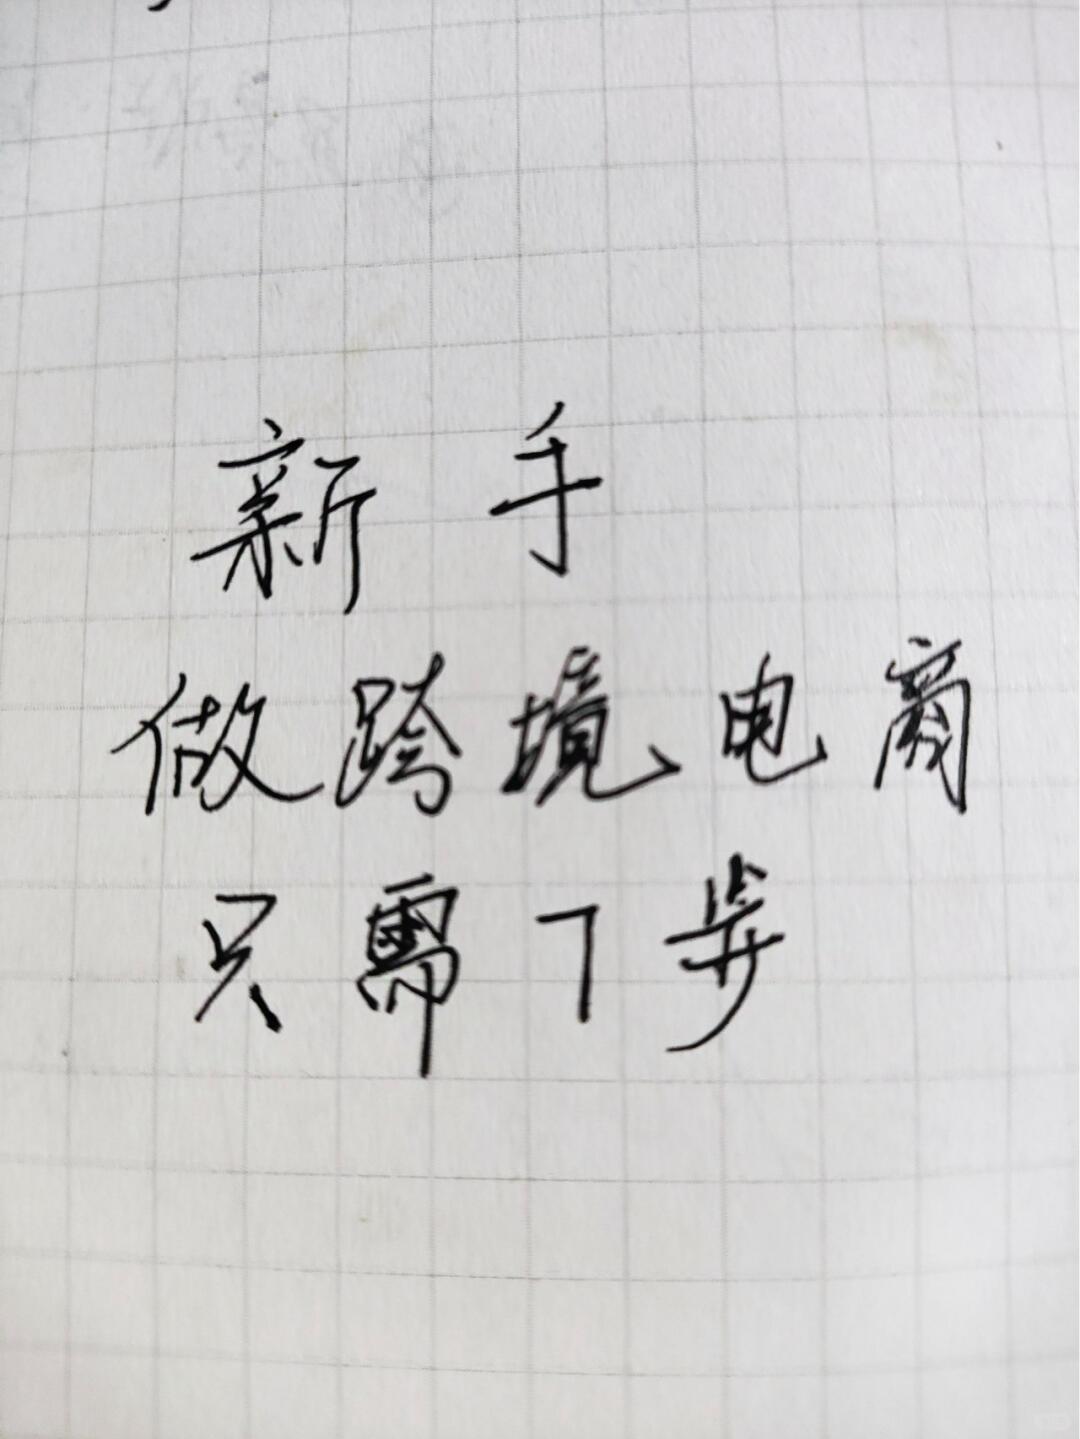 新手
做跨境电商
只需7步